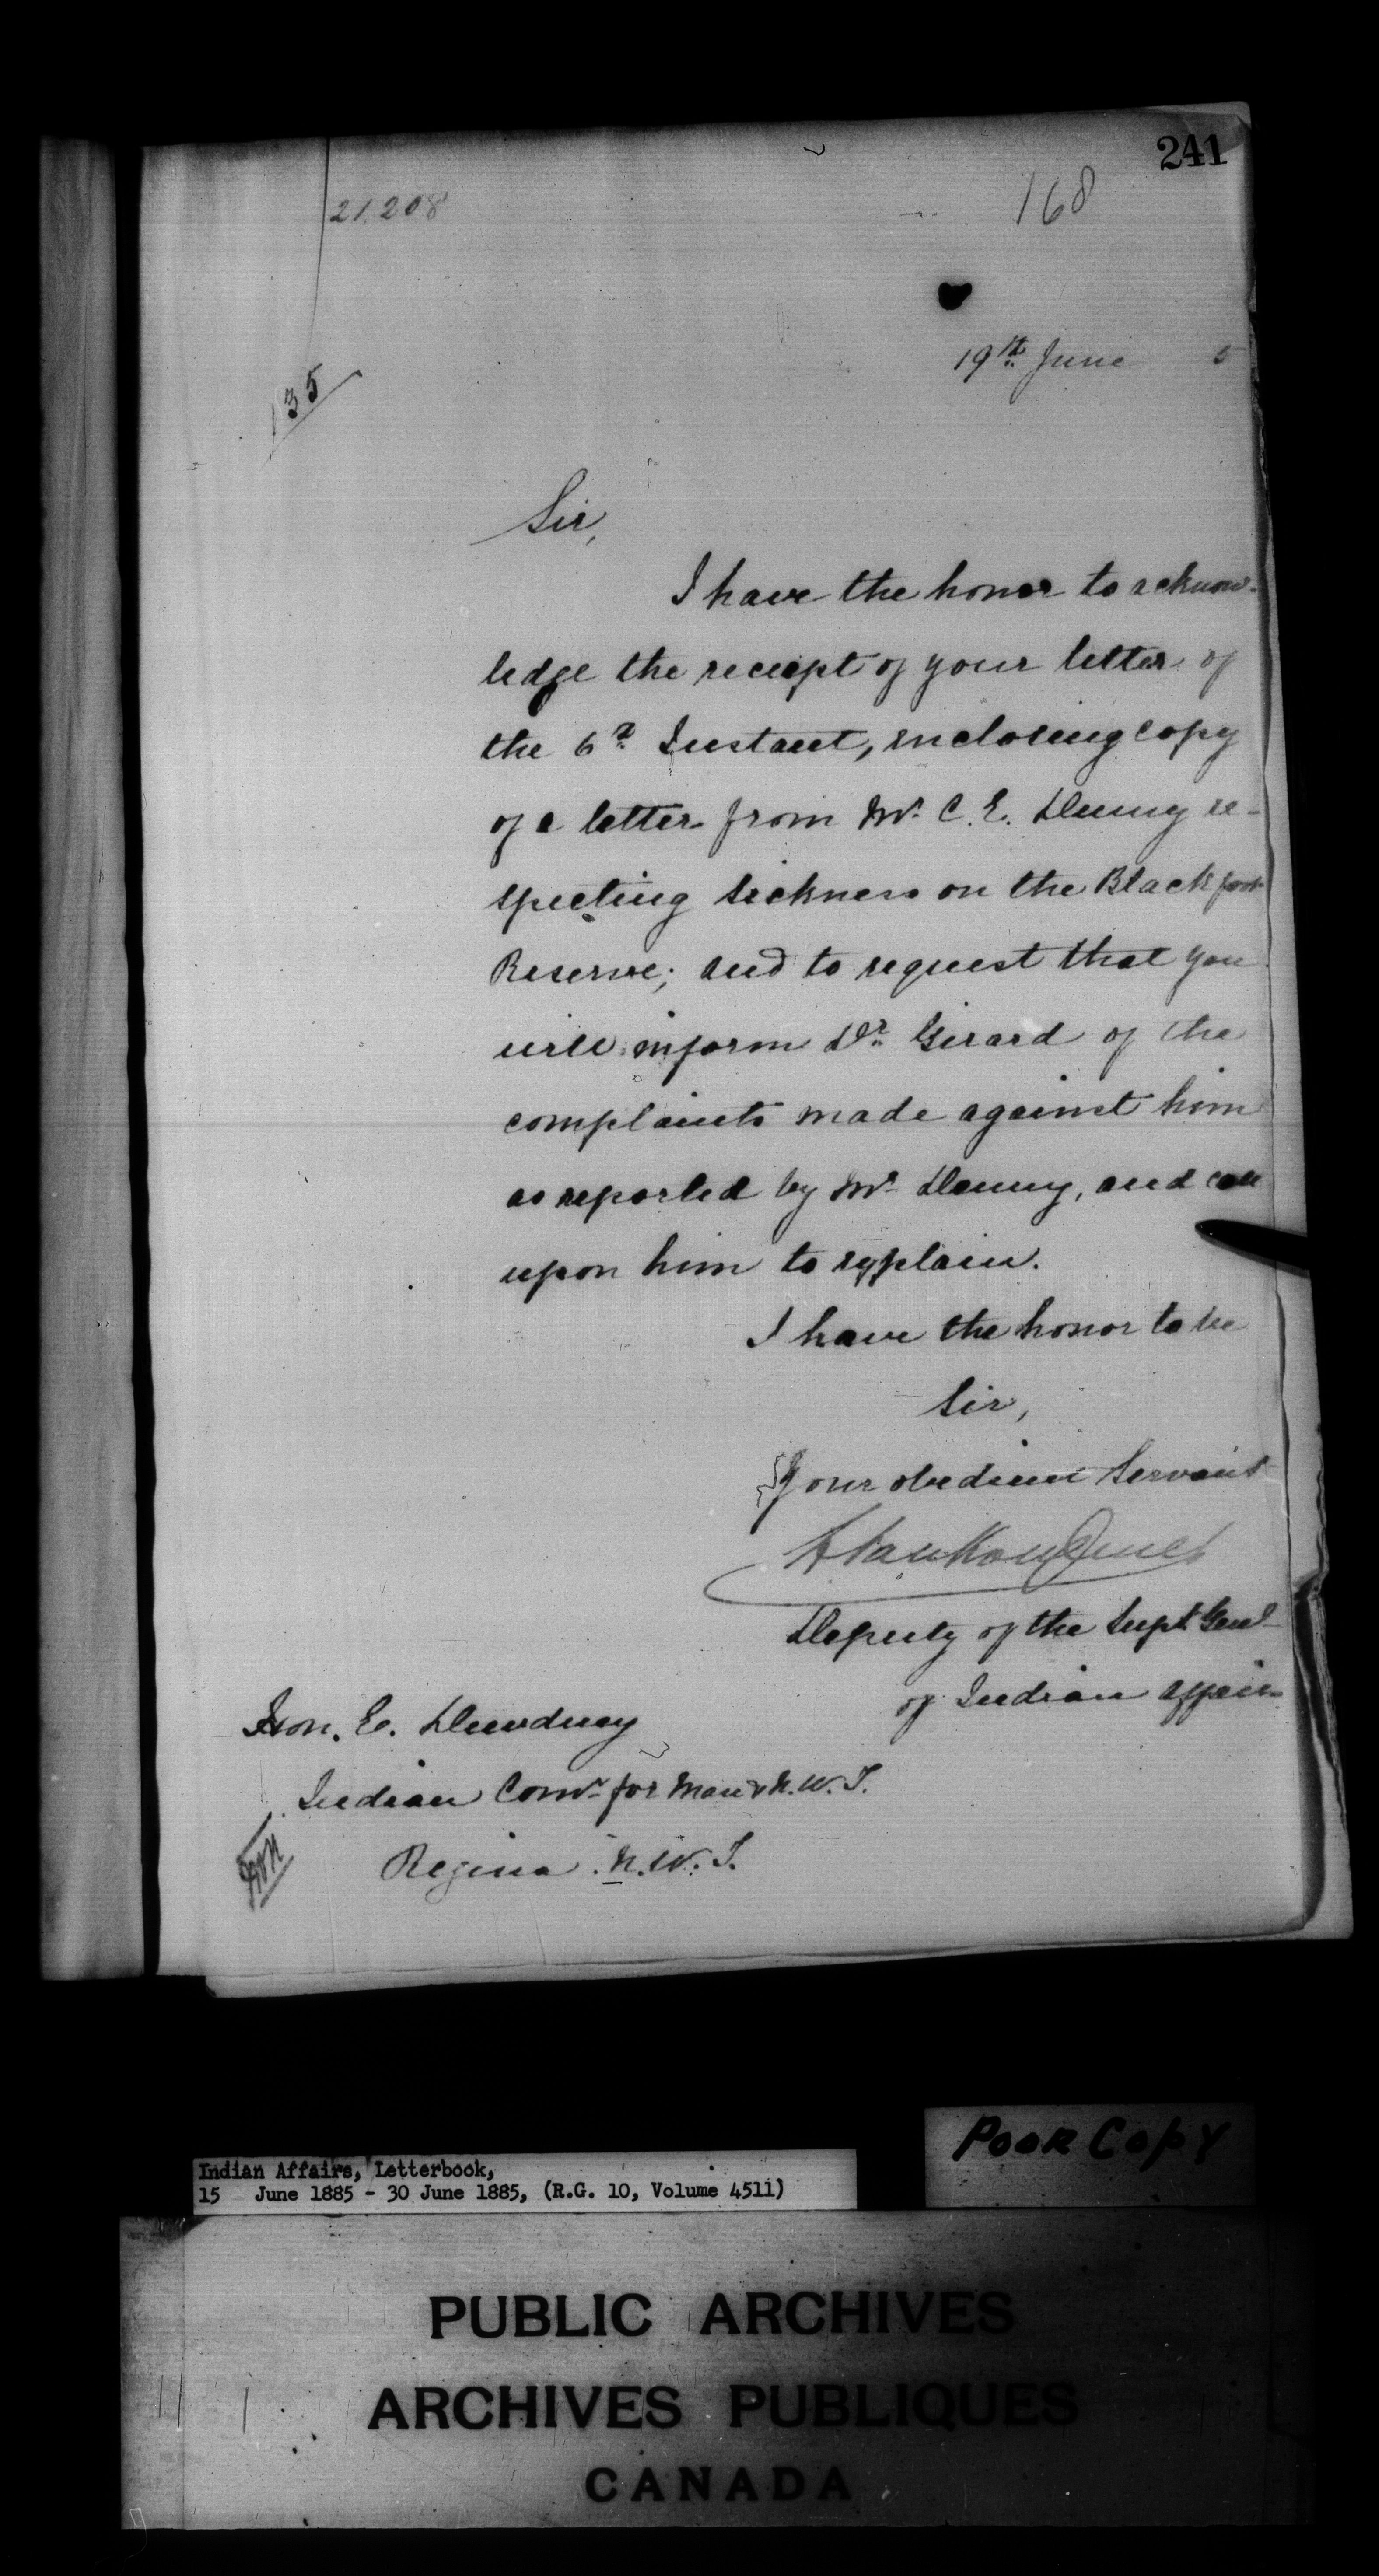 241
21.208
168
19th June 5
135
Sir,
I have the honor to acknow-
ledge the receipt of your letter of
the 6th Instant, enclosing copy
of a letter from Mr. C. E. Denny re-
specting sickness on the Blackfoot
Reserve; and to request that you
will inform Dr. Girard of the
complaints made against him
as reported by Mr. Denny, and call
upon him to explain.
I have the honor to be
Sir,
Your obedient Servant
L. VanKoughnet
Deputy of the Supt. Genl.
of Indian Affairs
Hon. E. Dewdney
Indian Comr. for Man & N.W.T.
Regina N.W.T.
Poor Copy
Indian Affairs, Letterbook,
15 June 1885 - 30 June 1885, (R.G. 10, Volume 4511)
PUBLIC ARCHIVES
ARCHIVES PUBLIQUES
CANADA